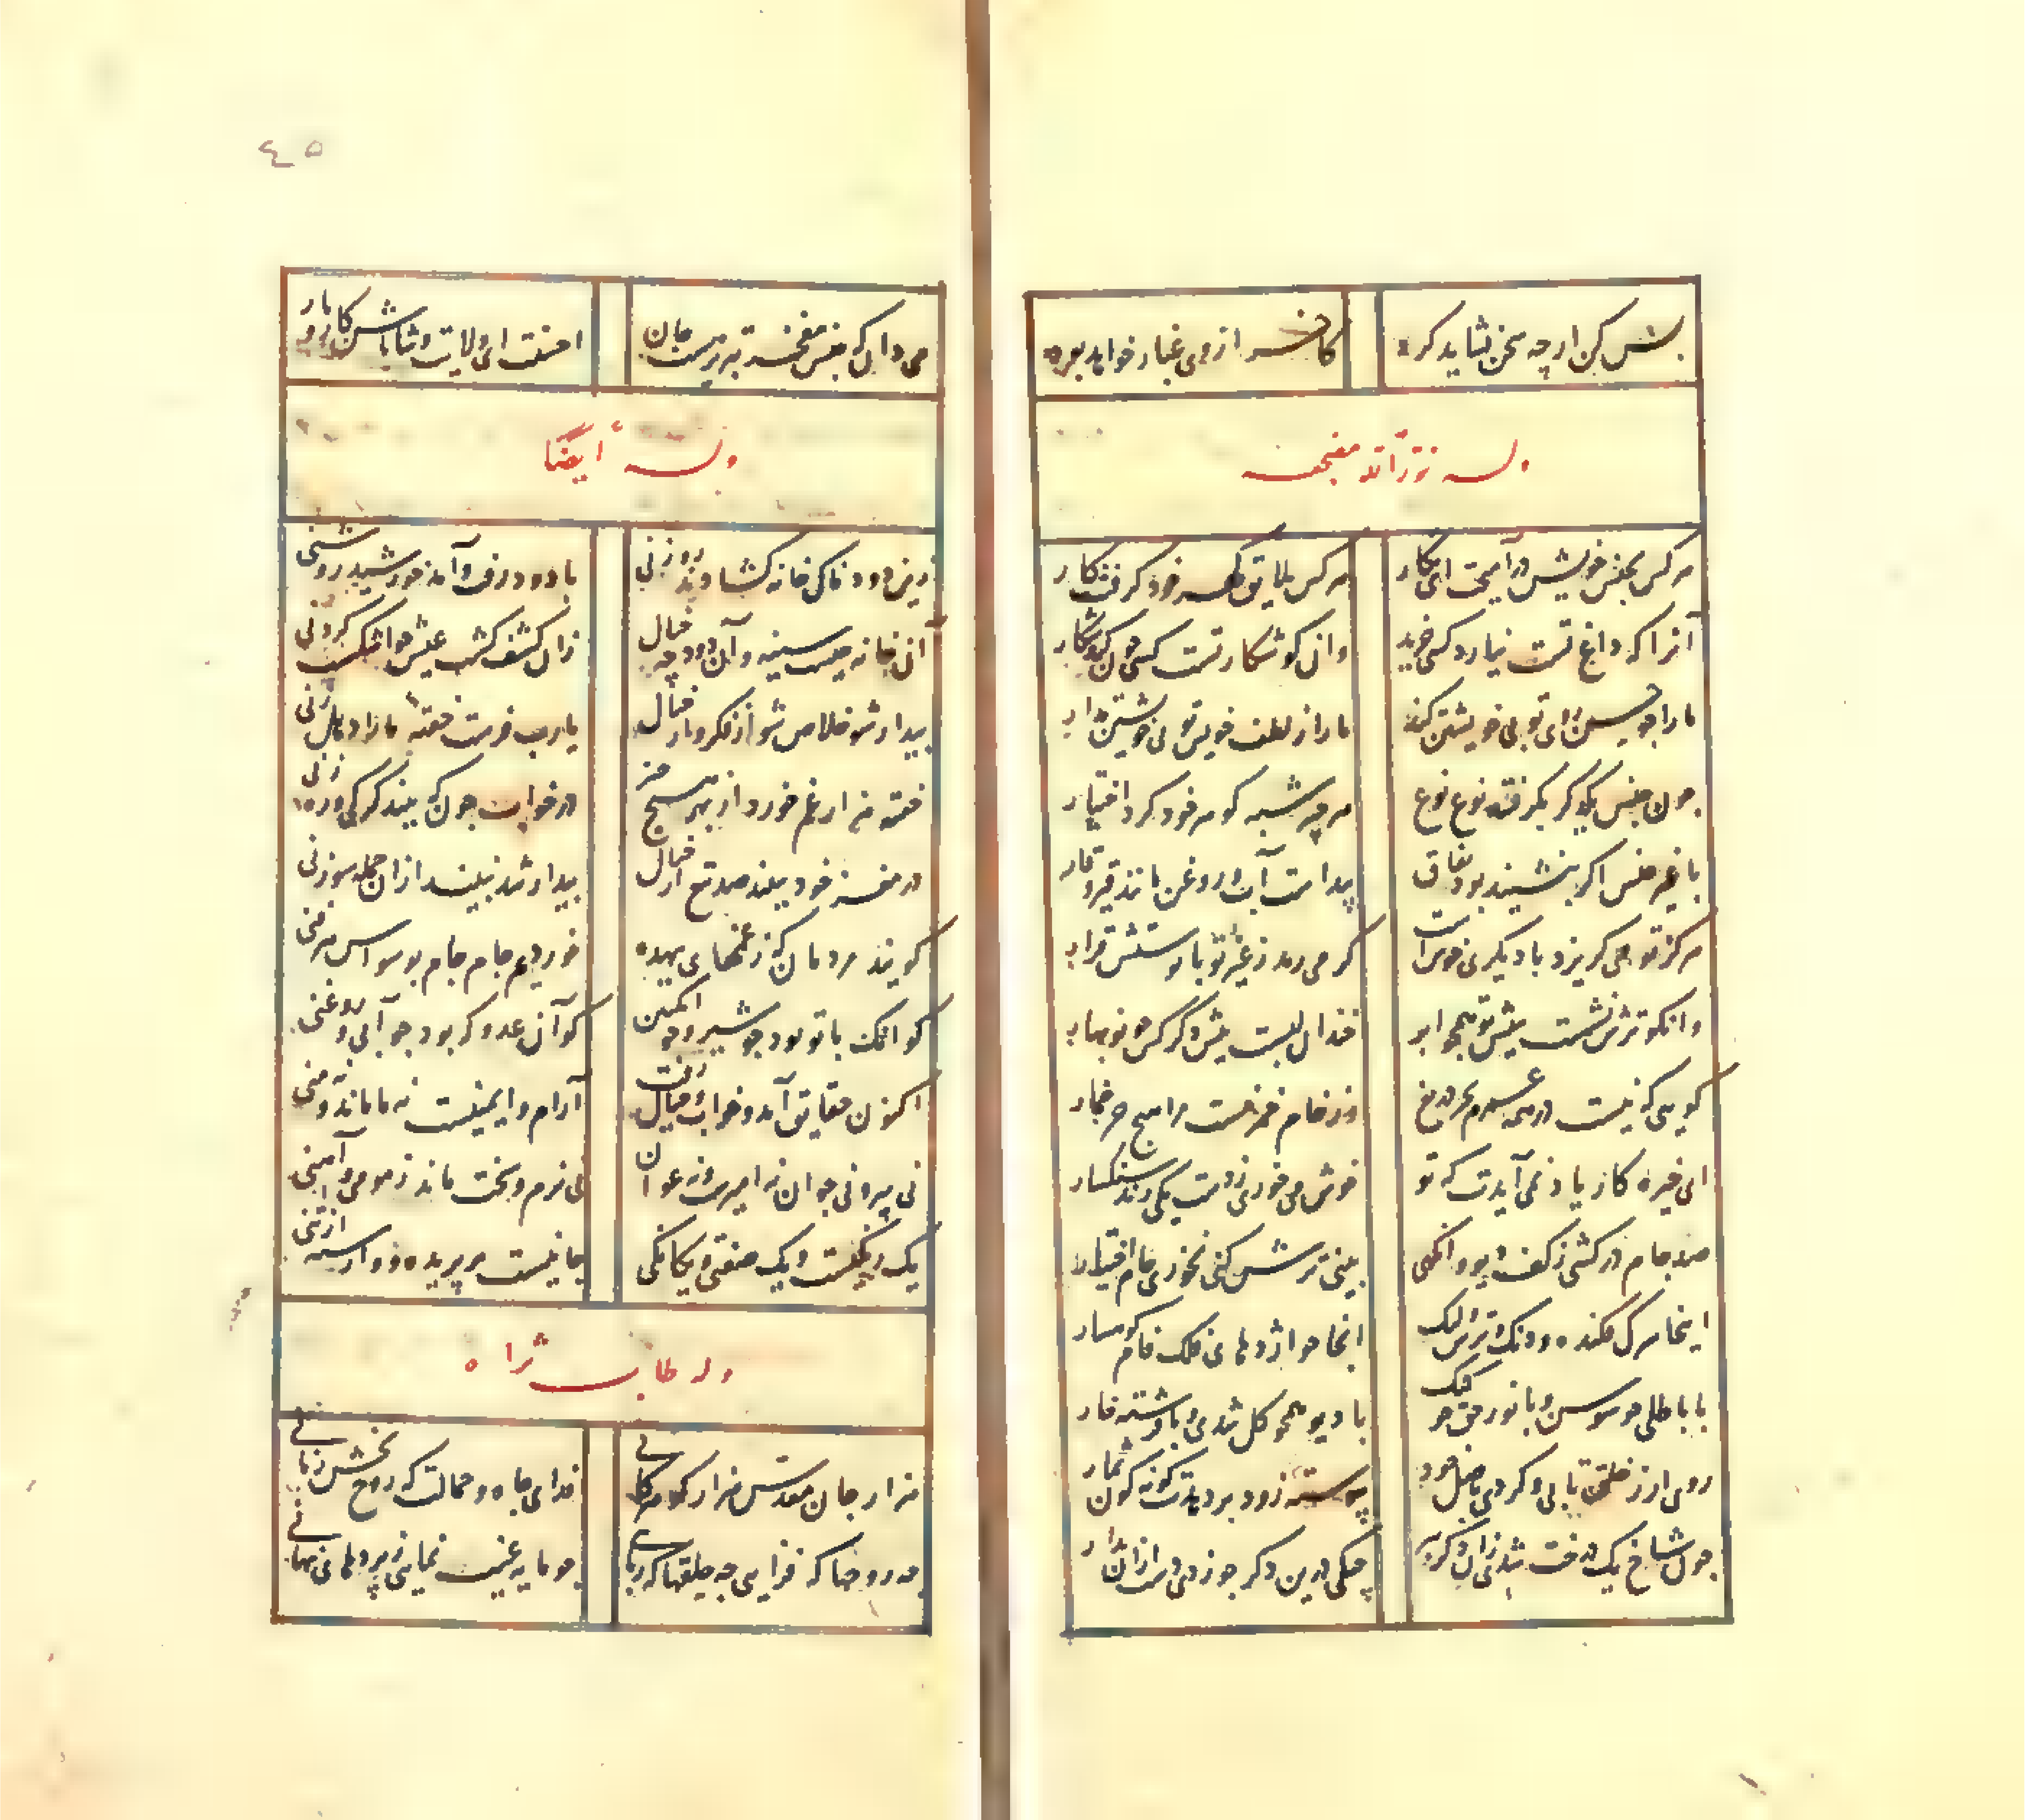 بس کن ار چه سخن نشاند گرد
کاخر از وی غبار خواهد بود
وله نور الله مضجعه
هر کس بجنس خویش درآمیخت ای نگار
هر کس بلایق گهر خود گرفت کار
آنرا که داغ تست نیارد کسی خرید
وان کو شکار تست کسی چون کند شکار
ما را چو لطف روی تو بی خویشتن کند
ما را ز لطف خویش تو بی خویشتن مدار
چون جنس یکدگر بگرفتند نوع نوع
هر چیز شبه گوهر خود کرد اختیار
با غیر جنس اگر بنشیند بود نفاق
پیداست آب و روغن مانند قیر و قار
هرکز تو می گریزد با دیگری خوش است
گر می رمد ز غیر تو با تو ستش قرار
وانکو ترش نشست بپیش تو همچو ابر
خندان لبست پیش دگر کس چو نوبهار
گویی که نیست در من عسرم بجز دریغ
وز خام خمر هست مرا هیچ جز خمار
ای خیره کار یاد نمی آیدت که تو
خوش می خوری ز دست یکی رند سنگسار
صد جام درکشی ز کف دیو و آنگهی
بینی ترش کنی نخوری جام اختیار
اینجا سرک فکنده و دنک و ترش ولیک
آنجا چو اژدهای فلک فام کوهسار
با باطلی چو سوسن و با نور حق چو کیک
با دیو همچو گل شدی و با فرشته خار
روی ار ز خلق تابی و گردی بأصل خود
پیوسته زود بردهدت گونه گون ثمار
چون شاخ یک درخت شدی زان دگر ببر
جفتی درین دگر چو زدی دست ازان بدار
می دان که جنس مفخر تبریزست جان
احسنت ای ولایت و شاباش کار و بار
وله ایضاً
زین دود ناک خانه گشادند روزنی
با دود در رفت و آمد خورشید روشنی
آن خانه چیست سینه و آن دود چه خیال
زان کشف گشت عیش حوا شکست گردنی
بیدار شو خلاص شو از فکر و از خیال
یا رب فرست خفته ما را دهل زنی
خفته هزار غم خورد از بهر هیچ چیز
در خواب چون که بیند گرگی و رهزنی
در هفت خود ببیند صد تیغ از خیال
بیدار شد نبیند ازان جمله سوزنی
گویند مردمان که ز غمهای بیهده
خوردیم جام جام بوسواس هر فنی
گو آنک با تو بود چو شیر و چو انگبین
گو آن عدو که بود چو آبی و روغنی
اکنون حقایق آمد و خواب و خیال رفت
آرام و ایمنیست نه ما ماند و منی
نی پیر و نی جوان نه اسیرست و نه عوان
نی نرم و سخت ماند نه موم و آهنی
یک رنگیست و یک صفتی و یگانگی
جانیست بر پریده و وارسته از تنی
وله طاب ثراه
هزار جان مقدس هزار گوهر کانی
فدای جاه و جمالت که روح بخش زمانی
چه روحها که فزایی چه حلقها که ربایی
چو ماه غیب نمایی ز پرده های نهانی
٤٥